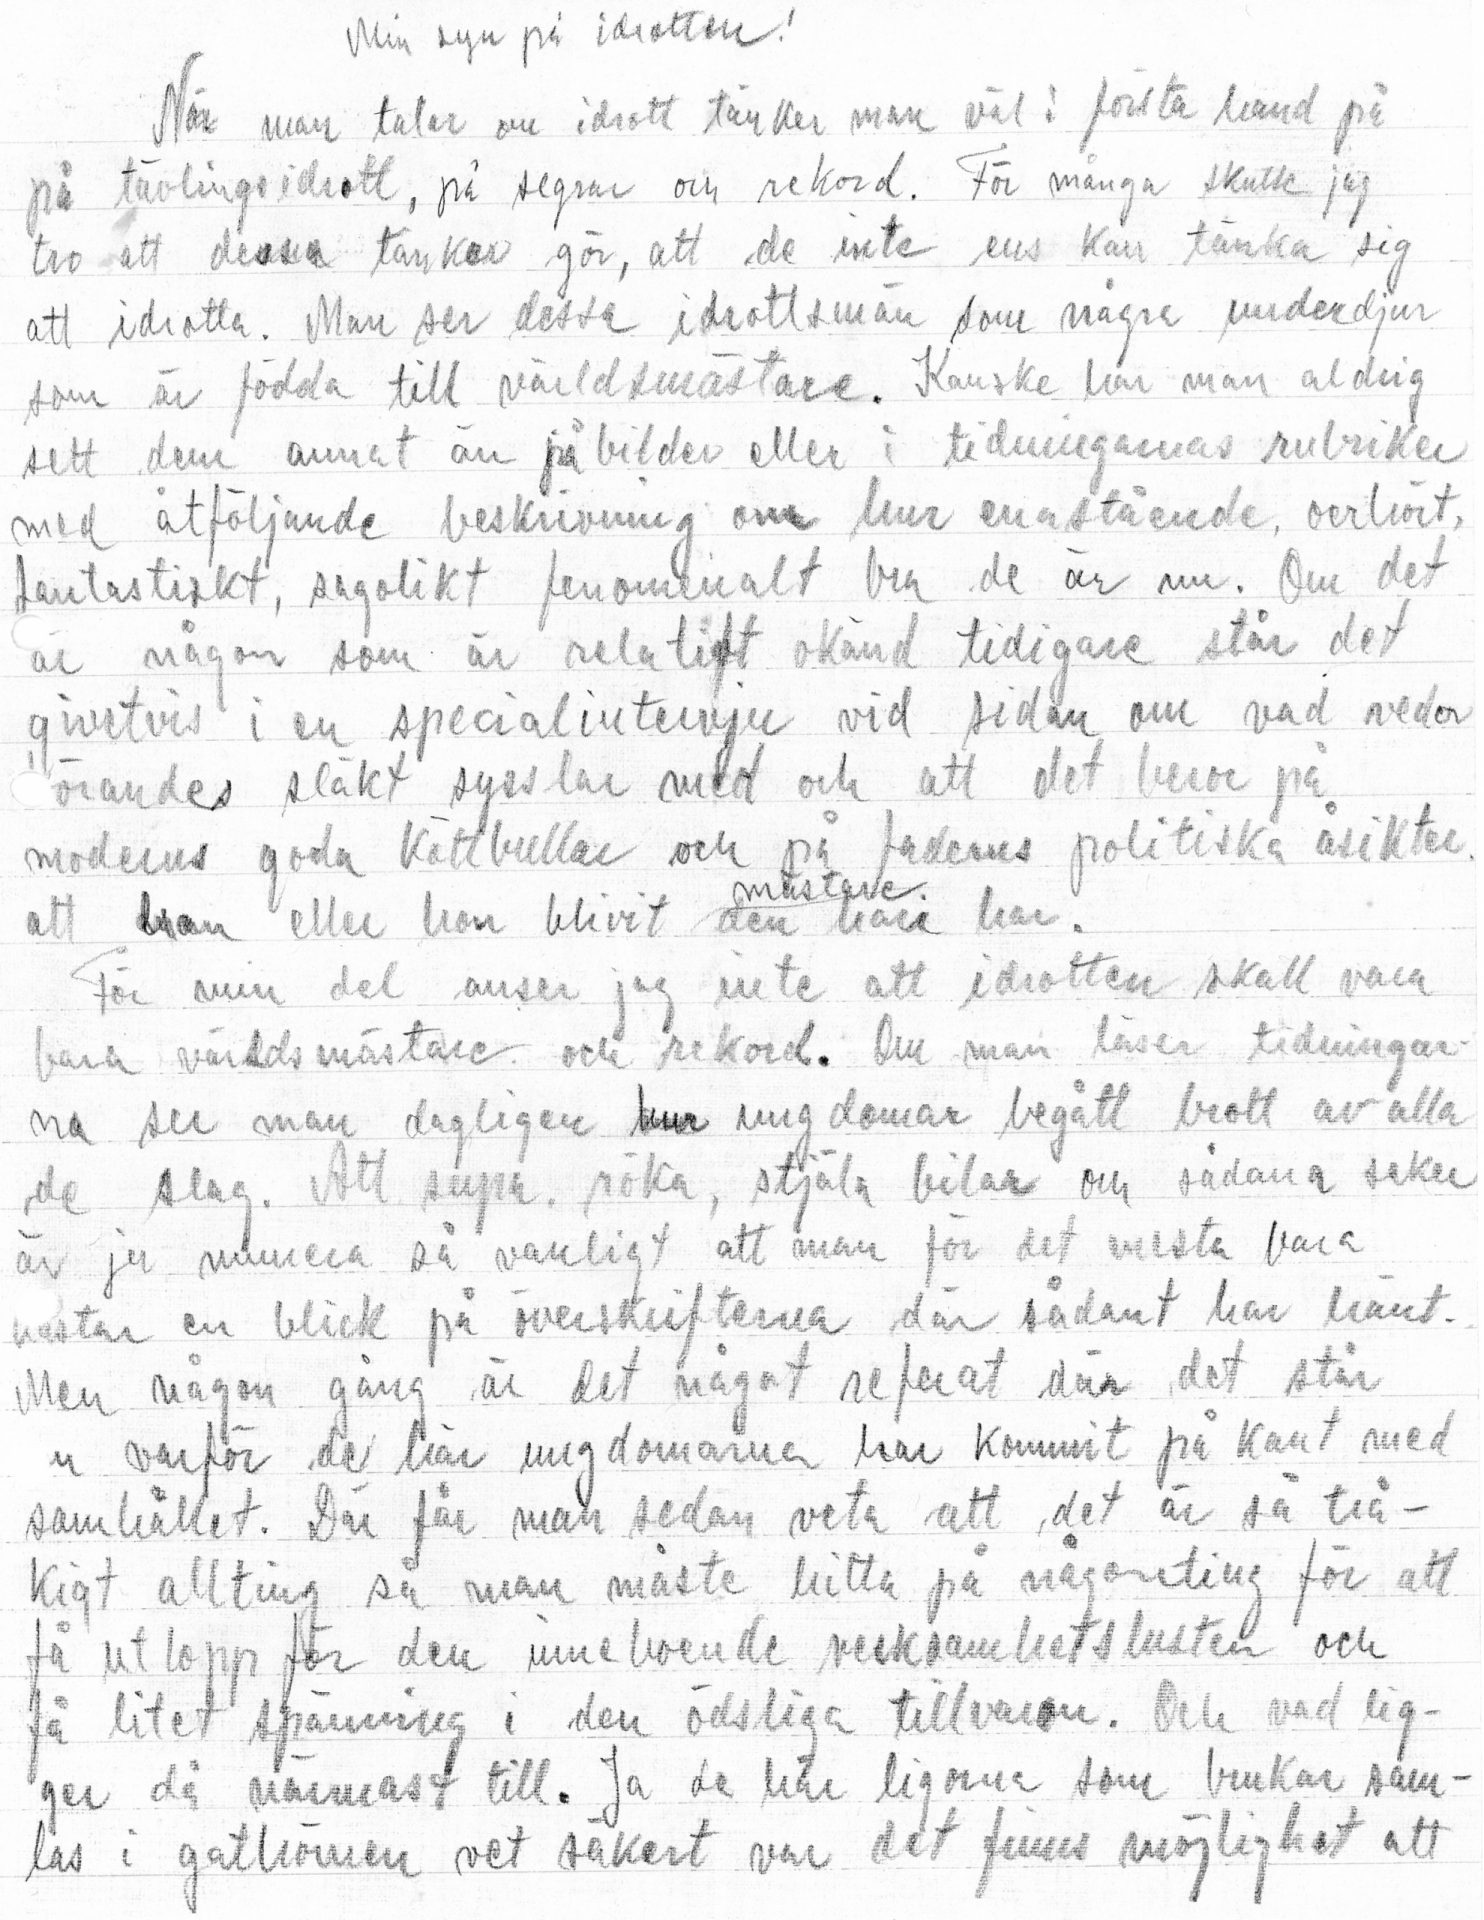 Min syn på idrotten!
När man talar om idrott tänker man väl i första hand på
på tävlingsidrott, på segrar och rekord. För många skulle jag
tro att dessa tankar gör, att de inte ens kan tänka sig
att idrotta. Man ser dessa idrottsmän som några underdjur
som är födda till världsmästare. Kanske har man aldrig
sett dem annat än på bilder eller i tidningarnas rubriker
med åtföljande beskrivning om hur enastående, oerhört,
fantastiskt, sagolikt fenomenalt bra de är nu. Om det
är någon som är relatift okänd tidigare står det
givetvis i en specialintervju vid sidan om vad veder
örandes släkt sysslar med och att det beror på
moderns goda köttbullar och på faderns politiska åsikter.
att han eller hon blivit den mästare han har.
För min del anser jag inte att idrotten skall vara
bara världsmästare och rekord. Om man läser tidningar-
na ser man dagligen hur ungdomar begått brott av alla
de slag. Att supa, röka, stjäla bilar och sådana saker
är ju numera så vanligt att man för det mesta bara
kastar en blick på överskrifterna där sådant har hänt.
Men någon gång är det något referat där det står
varför de här ungdomarna har kommit på kant med
samhället. Där får man sedan veta att det är så trå-
kigt allting så man måste hitta på någonting för att
få utlopp för den inneboende verksamhetslusten och
få litet spänning i den ödsliga tillvaron. Och vad lig-
ger då närmast till. Ja de här ligorna som brukar sam-
las i gathörnen vet säkert var det finns möjlighet att